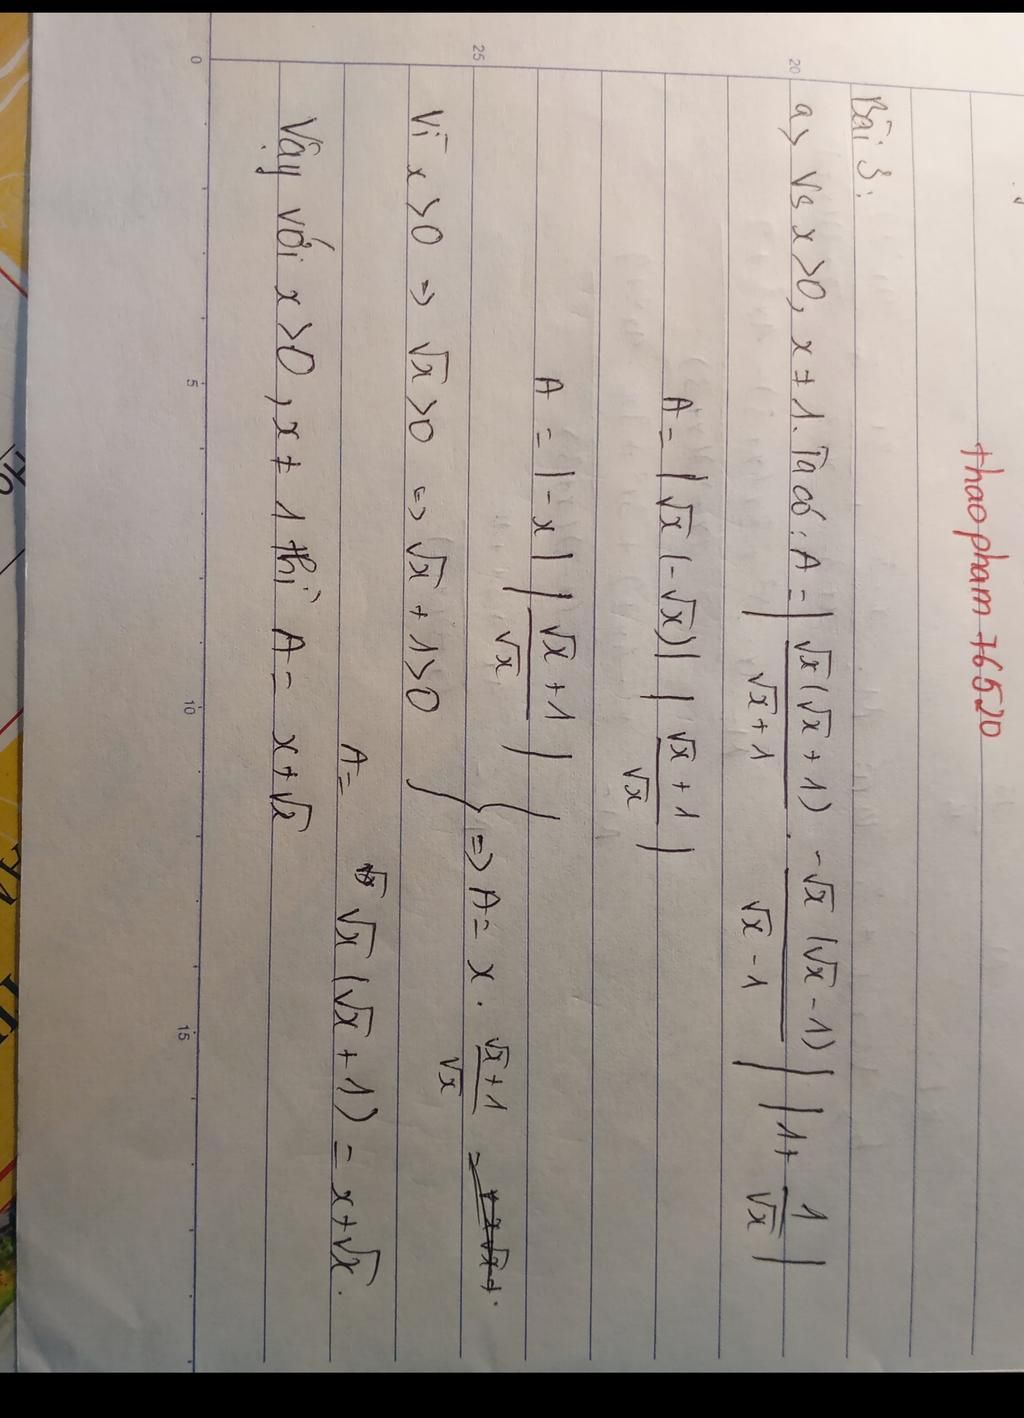 thaopham76520
Bài 3:
a> Vs x>0, x≠1. Ta có: A = |√x(√x+1)/√x+1 . -√x(√x-1)/√x-1| |1+ 1/√x|
A = |√x(-√x)| |√x+1/√x|
A = |-x| |√x+1/√x|
Vì x>0 => √x>0 => √x+1>0 } => A = x . √x+1/√x
A = √x(√x+1) = x+√x.
Vậy với x>0, x≠1 thì A = x+√x
20
25
0
5
10
15